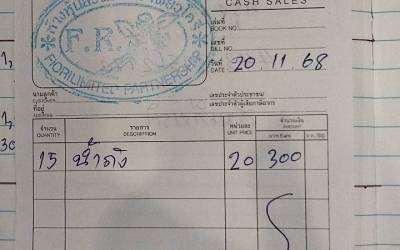 CASH SALES
F.R.
FIORI LIMITED PARTNERSHIP
เล่มที่
BOOK NO.
เลขที่
BILL NO.
วันที่
DATE 20.11.68
นามลูกค้า
CUSTOMER
ที่อยู่
ADDRESS
เลขประจำตัวประชาชน/
เลขประจำตัวผู้เสียภาษีอากร
จำนวน รายการ หน่วยละ จำนวนเงิน
QUANTITY DESCRIPTION UNIT PRICE AMOUNT
15 น้ำถัง 20 300